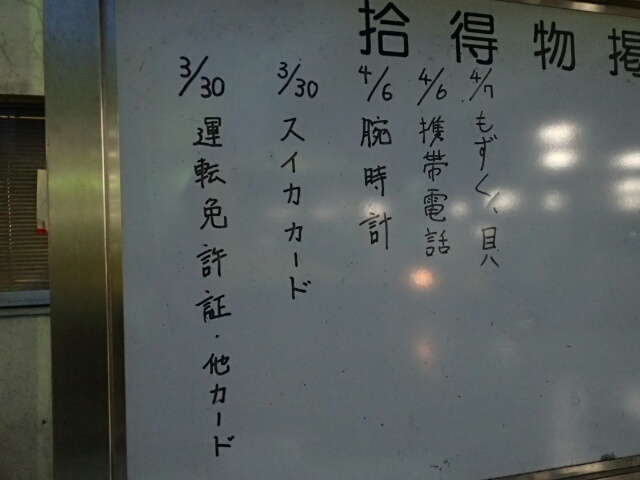 拾得物掲
4/7 もずく、貝
4/6 携帯電話
4/6 腕時計
3/30 スイカカード
3/30 運転免許証・他カード